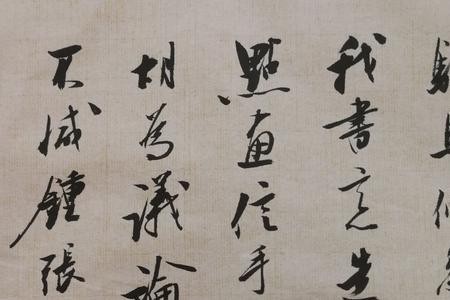 我書意造
點畫信手
胡為議論
不減鍾張